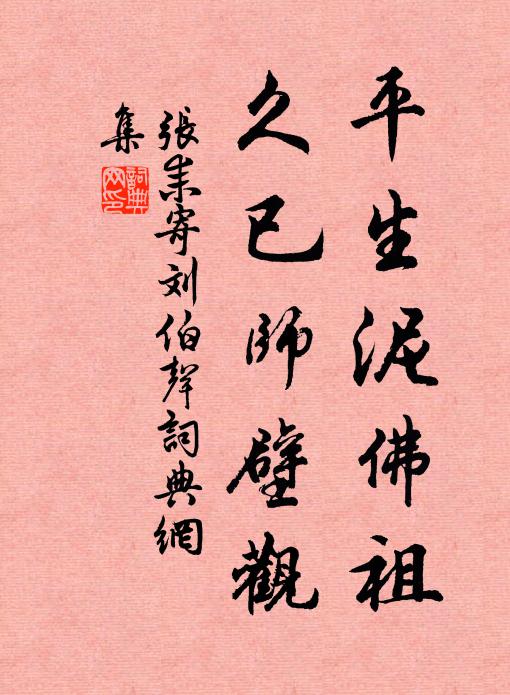 平生泥佛祖
久已師壁觀
張耒寄刘伯聲詞典網
集
詞典
网印